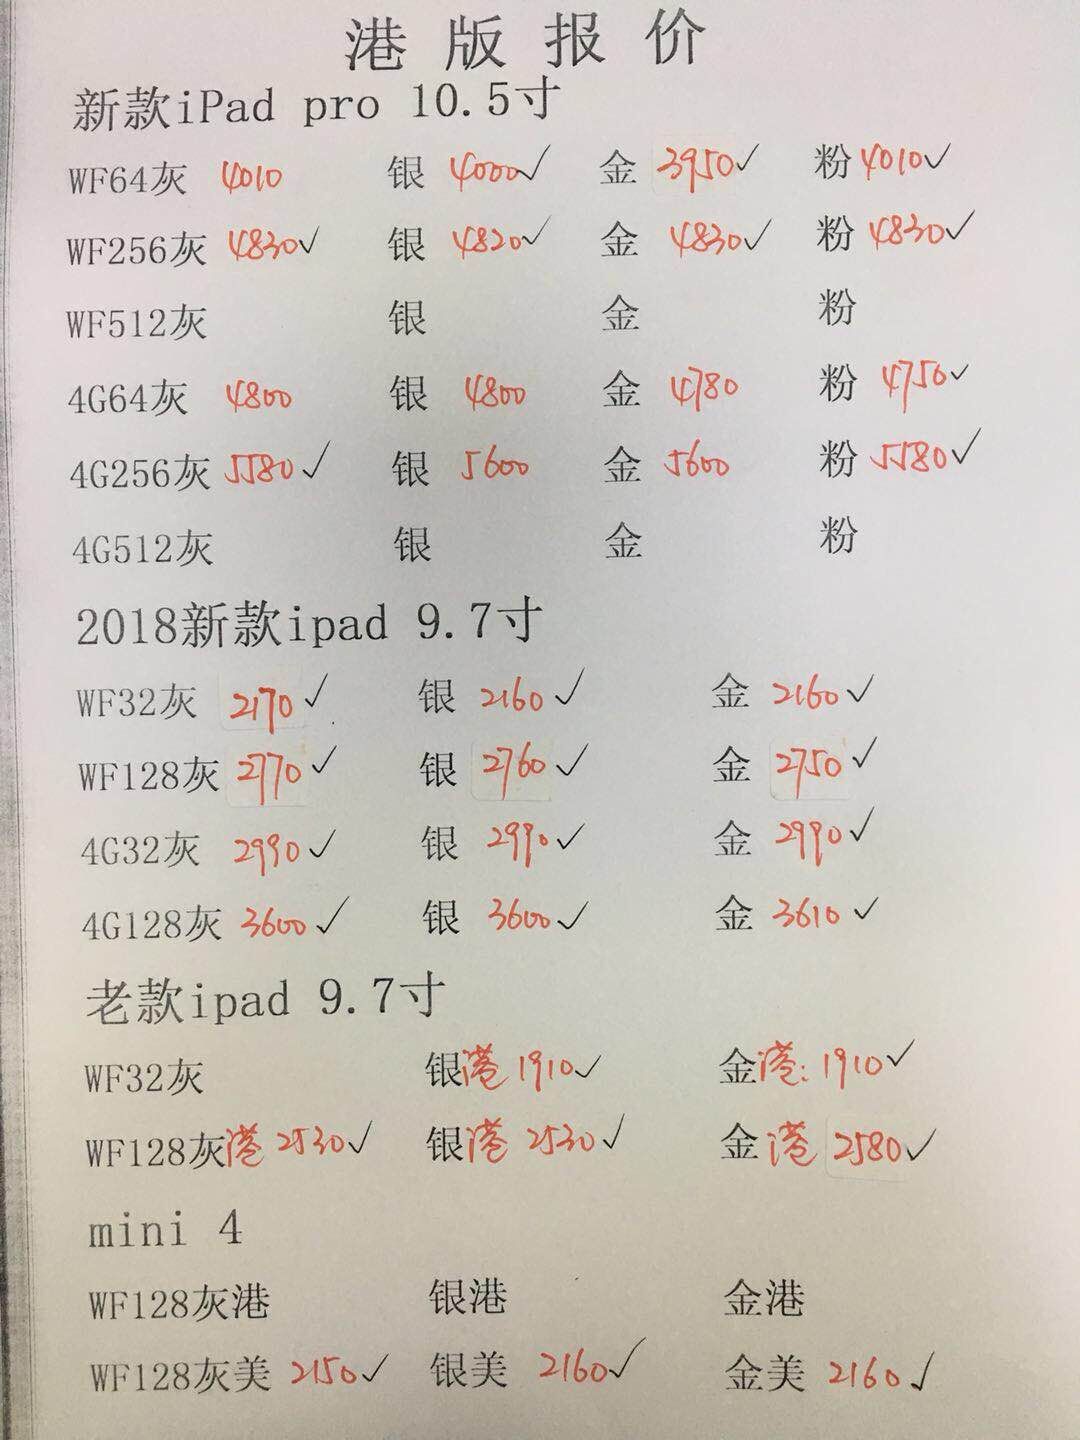 港版报价
新款iPad pro 10.5寸
WF64灰 4010 银 4000✓ 金 3950✓ 粉 4010✓
WF256灰 4830✓ 银 4820✓ 金 4830✓ 粉 4830✓
WF512灰 银 金 粉
4G64灰 4800 银 4800 金 4780 粉 4750✓
4G256灰 5580✓ 银 5600 金 5600 粉 5580✓
4G512灰 银 金 粉
2018新款ipad 9.7寸
WF32灰 2170✓ 银 2160✓ 金 2160✓
WF128灰 2770✓ 银 2760✓ 金 2750✓
4G32灰 2990✓ 银 2990✓ 金 2990✓
4G128灰 3600✓ 银 3600✓ 金 3610✓
老款ipad 9.7寸
WF32灰 银港 1910✓ 金港: 1910✓
WF128灰港 2530✓ 银港 2530✓ 金港 2580✓
mini 4
WF128灰港 银港 金港
WF128灰美 2150✓ 银美 2160✓ 金美 2160✓